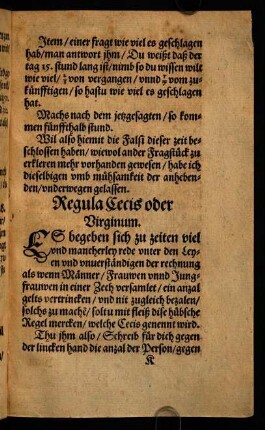 Item / einer fragt wie viel es geschlagen
hab / man antwort jhm / Du weißt daß der
tag 15. stund lang ist / nimb so du wissen wilt
wie viel / von vergangen / vnnd vom zu-
künfftigen / so hastu wie viel es geschlagen
hat.
Machs nach dem jetzgesagten / so kom-
men fünffthalb stund.
Wil also hiemit die Falsi dieser zeit be-
schlossen haben / wiewol ander Fragstück zu
erkleren mehr vorhanden gewesen / habe ich
dieselbigen vmb mühsamkeit der anheben-
den / vnderwegen gelassen.
Regula Cecis oder
Virginum.
ES begeben sich zu zeiten viel
vnd mancherley rede vnter den Ley-
en vnd vnuerständigen der rechnung
als wenn Männer / Frauwen vnnd Jung-
frauwen in einer Zech versamlet / ein anzal
gelts vertrincken / vnd nit zugleich bezalen /
solchs zu machē / soltu mit fleiß dise hübsche
Regel mercken / welche Cecis genennt wird.
Thu jhm also / Schreib für dich gegen
der lincken hand die anzal der Person / gegen
K